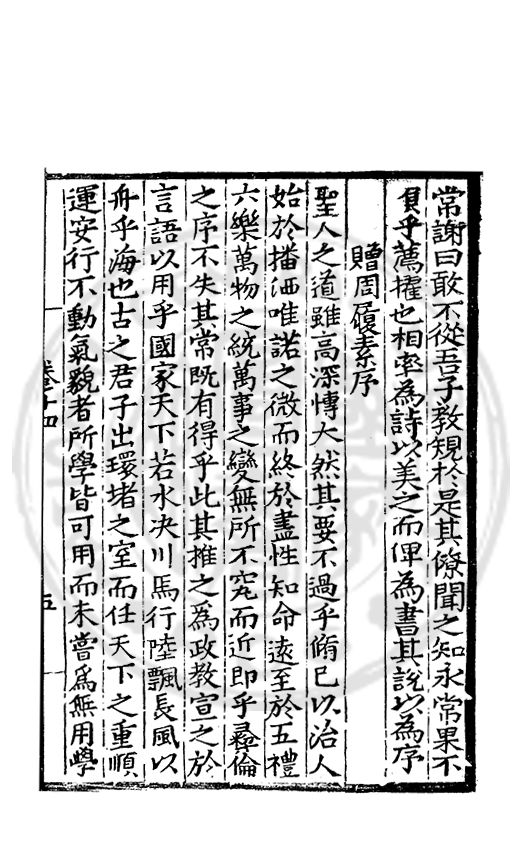 常謝曰敢不從吾子教規於是其僚聞之知永常果不
負乎薦擢也相率為詩以美之而俾為書其說以為序
贈周履素序
聖人之道雖高深博大然其要不過乎脩已以治人
始於播洒唯諾之微而終於盡性知命遠至於五禮
六樂萬物之統萬事之變無所不究而近即乎彞倫
之序不失其常既有得乎此其推之爲政教宣之於
言語以用乎國家天下若水决川馬行陸飄長風以
舟乎海也古之君子出環堵之室而任天下之重順
運安行不動氣貌者所學皆可用而未嘗爲無用學
卷十四
五